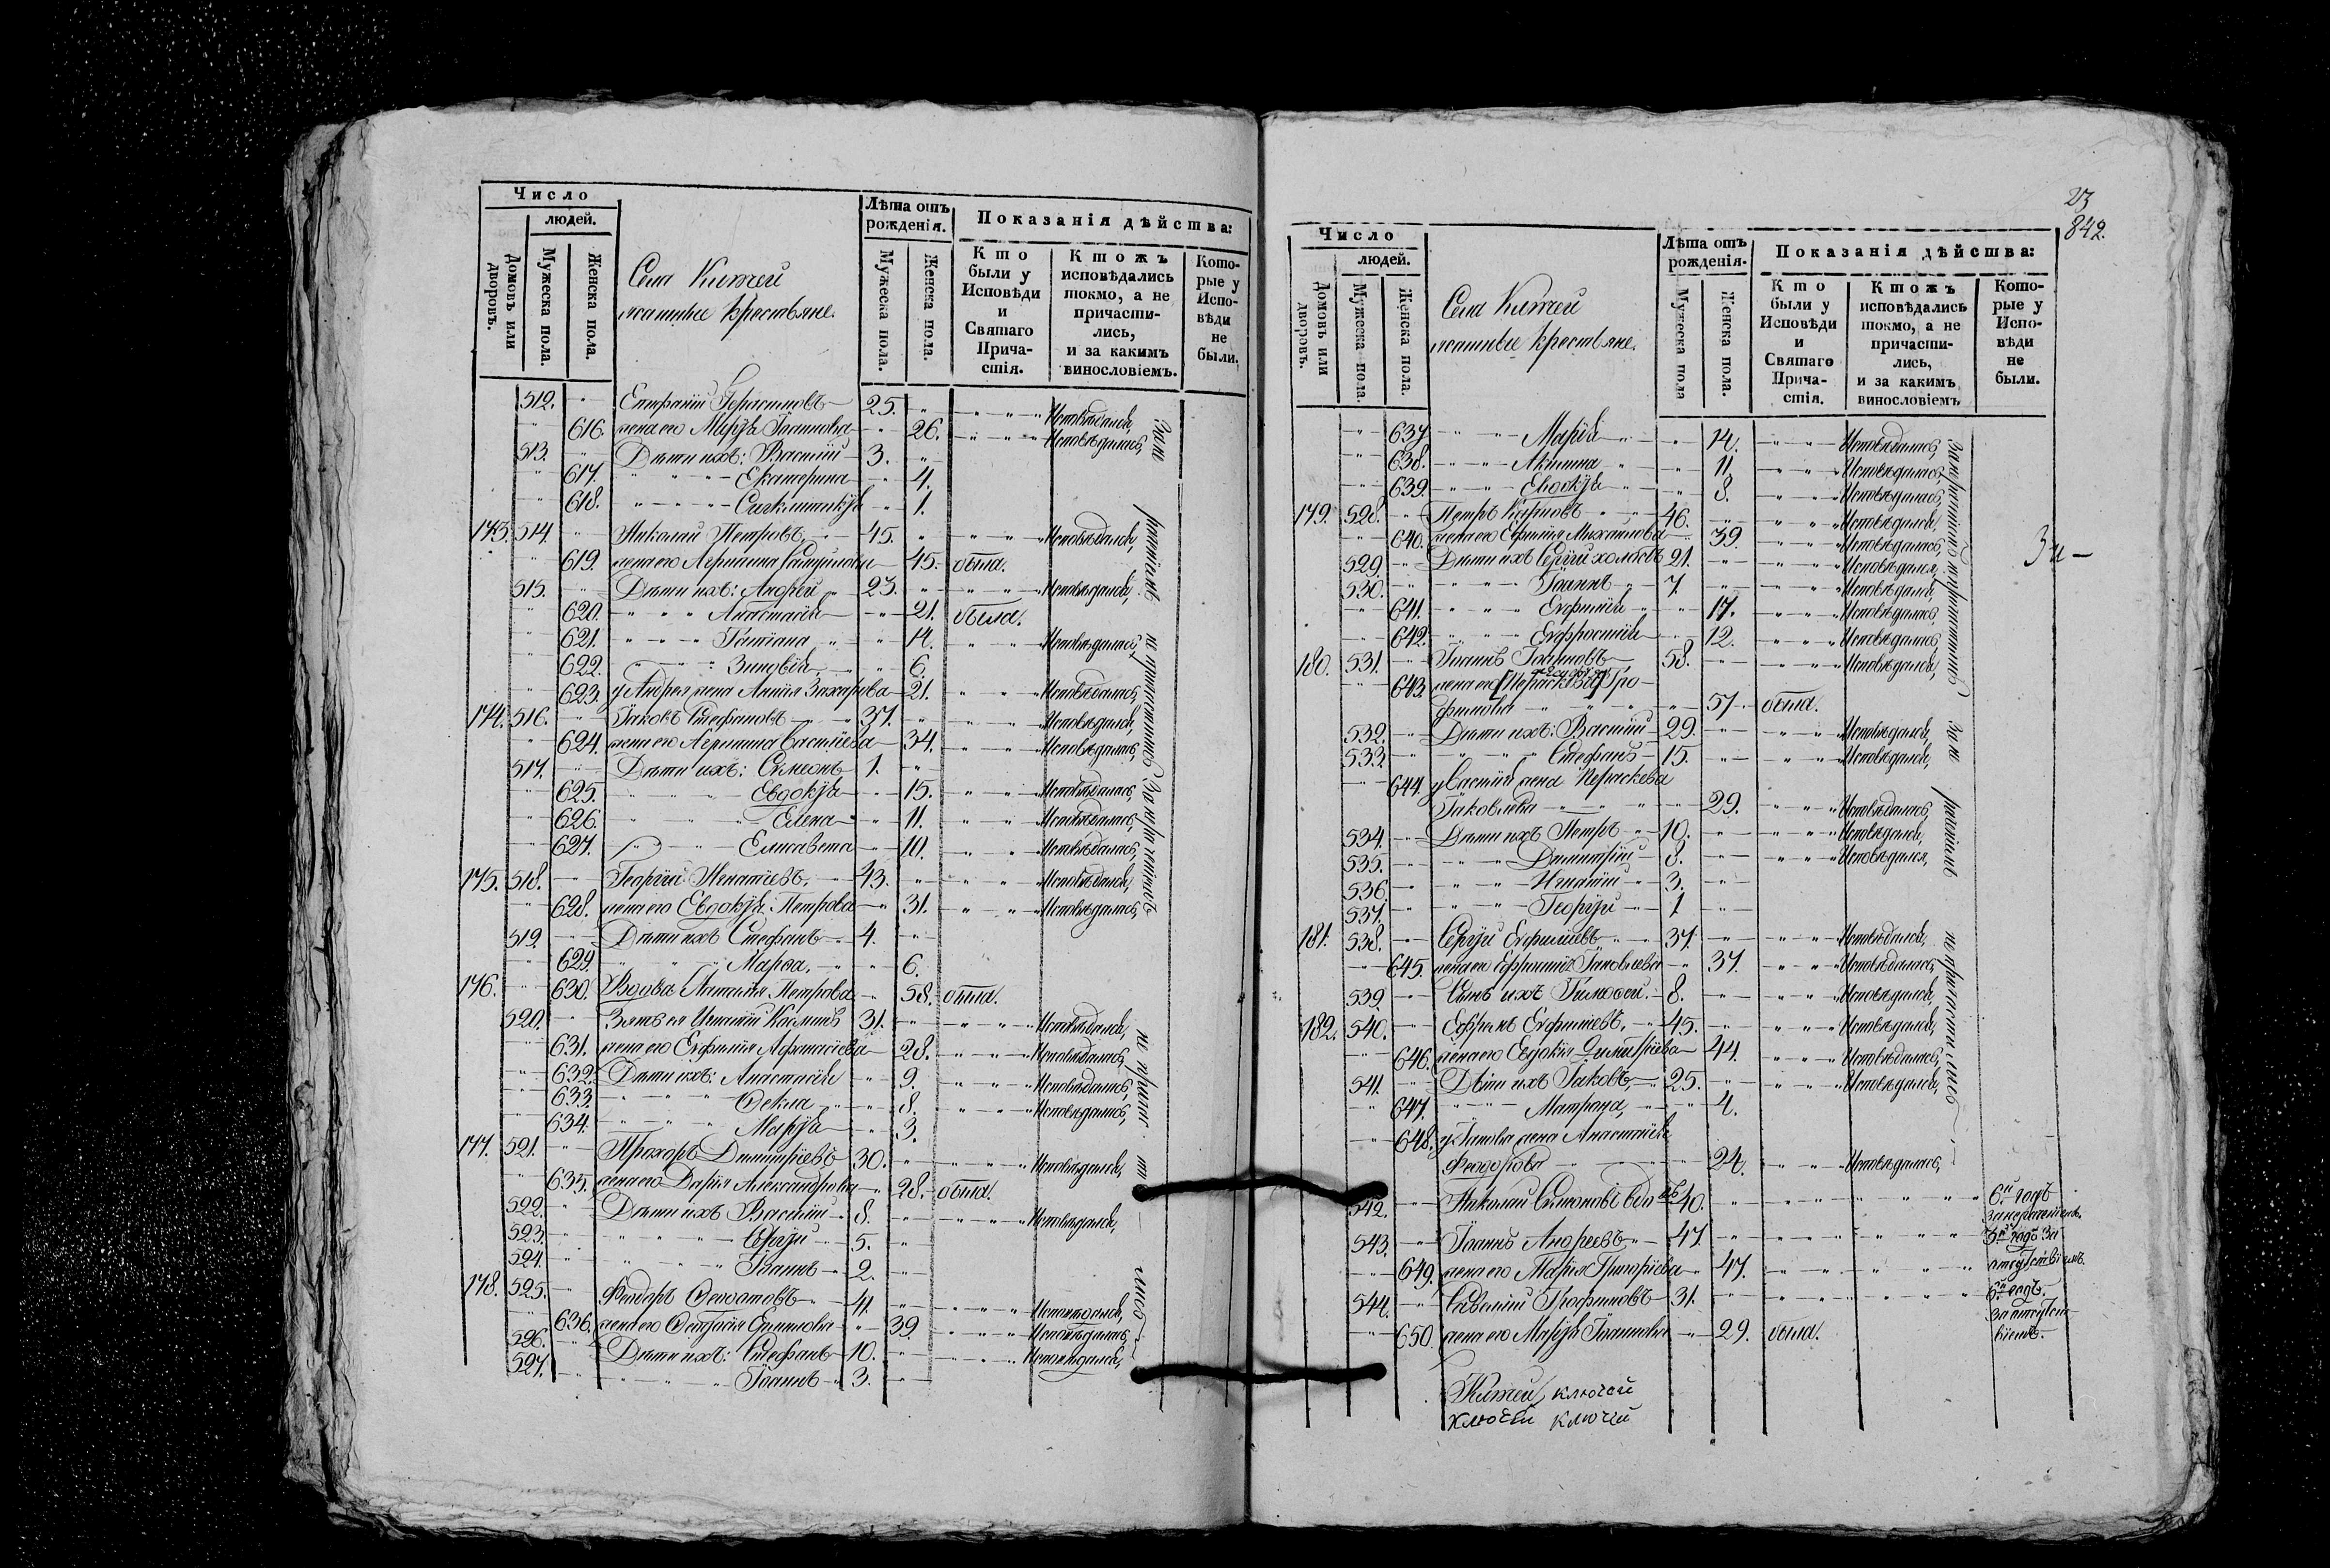 Число
людей.
Домовъ или дворовъ.
Мужеска пола.
Женска пола.
Села Ключей
ясашные Крестьяне.
Лѣта отъ рожденія.
Мужеска пола.
Женска пола.
Показанія дѣйства:
Кто были у Исповѣди и Святаго Прича-стія.
Ктожъ исповѣдались токмо, а не причасти-лись, и за какимъ винословіемъ.
Кото-рые у Испо-вѣди не были.
512. Герасимовъ 25. Исповѣдался,
616. жена его Марѳа Іоаннова 26. Исповѣдалась,
513. Дѣти ихъ: Василій 3.
617. Екатерина 4.
618. 1.
173. 514. Николай Петровъ 45. Исповѣдался,
619. жена его Агрипина 45. была.
515. Дѣти ихъ: Андрей 23. Исповѣдался,
620. Анастасія 21. была.
621. Татіана 14. Исповѣдалась,
622. Зиновія 6.
623. у Андрея жена Анна Захарова 21. Исповѣдалась,
174. 516. Іаковъ Стефановъ 37. Исповѣдался,
624. жена его Агрипина Васильева 34. Исповѣдалась,
517. Дѣти ихъ: Симеонъ 1.
625. Евдокія 15. Исповѣдалась,
626. Елена 11. Исповѣдалась,
627. Елисавета 10. Исповѣдалась,
175. 518. Георгій Игнатіевъ 43. Исповѣдался,
628. жена его Евдокія Петрова 31. Исповѣдалась,
519. Дѣти ихъ Стефанъ 4.
629. Марѳа 6.
176. 630. Вдова Петрова 58. была.
520. Зять ея Игнатій 31. Исповѣдался,
631. жена его Евфимія Афанасіева 28. Исповѣдалась,
632. Дѣти ихъ: Анастасія 9. Исповѣдалась,
633. Ѳекла 8. Исповѣдалась,
634. Марія 3.
177. 521. Прохоръ Димитріевъ 30. Исповѣдался,
635. жена его Дарія Александрова 28. была.
522. Дѣти ихъ Василій 8. Исповѣдался,
523. Сергій 5.
524. Іоаннъ 2.
178. 525. Феодоръ 41. Исповѣдался,
636. жена его 39. Исповѣдалась,
526. Дѣти ихъ: Стефанъ 10. Исповѣдался,
527. Іоаннъ 3.
23
842.
Число
людей.
Домовъ или дворовъ.
Мужеска пола.
Женска пола.
Села Ключей
ясашные Крестьяне.
Лѣта отъ рожденія.
Мужеска пола
Женска пола.
Показанія дѣйства:
Кто были у Исповѣди и Святаго Прича-стія.
Ктожъ исповѣдались токмо, а не причасти-лись, и за какимъ винословіемъ
Кото-рые у Испо-вѣди не были.
637 Марія 14. Исповѣдалась,
638. Акилина 11. Исповѣдалась,
639. Евдокія 8. Исповѣдалась,
179. 528. Петръ Карповъ 46. Исповѣдался,
640. жена его Евфимія Михаилова 39. Исповѣдалась,
529. Дѣти ихъ Сергій холостъ 21. Исповѣдался,
530. Іоаннъ 7. Исповѣдался,
641. Евфимія 17. Исповѣдалась,
642. Евфросинія 12. Исповѣдалась,
180. 531. Іоаннъ Іоанновъ 58. Исповѣдался,
643. жена его Тро-
фимова 57. была.
532. Дѣти ихъ: Василій 29. Исповѣдался,
533. Стефанъ 15. Исповѣдался,
644. у Василія жена Параскева
Іаковлева 29. Исповѣдалась,
534. Дѣти ихъ Петръ 10. Исповѣдался,
535. Димитрій 8. Исповѣдался,
536. Игнатій 3.
537. Георгій 1
181. 538. Сергій Евфиміевъ 37. Исповѣдался,
645. жена его Евфросинія Іаковлева 37. Исповѣдалась,
539. Сынъ ихъ Тимоѳей 8. Исповѣдался,
182. 540. Ефремъ Евфиміевъ, 45. Исповѣдался,
646. жена его Евдокія Димитріева 44. Исповѣдалась,
541. Дѣти ихъ Іаковъ, 25. Исповѣдался,
647. Матрона, 4.
648. у Іакова жена Анастасія
Феодорова 24. Исповѣдалась,
542. Николай Симоновъ 40. 6й годъ
за нераченіемъ.
543. Іоаннъ Андреевъ 47. годъ за
649. жена его Марія Григоріева 47. отсутствіемъ.
544. Савелій Трофимовъ 31. 6й годъ.
за отсутст-
650. жена его Марія Іоаннова 29. была. віемъ.
Ключей, ключей
ключей ключей